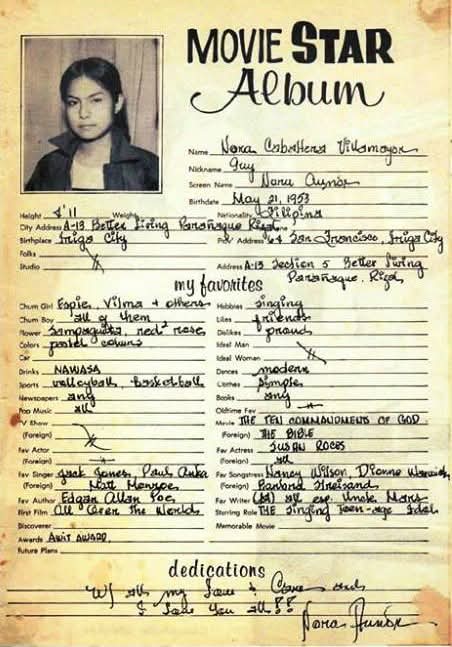 MOVIE STAR
Album
Name Nora Cabaltera Villamayor
Nickname Guy
Screen Name Nora Aunor
Birthdate May 21, 1953
Height 4'11 Weight Nationality Filipina
City Address A-13 Better Living Parañaque Rizal
Birthplace Iriga City Prov Address 64 San Francisco, Iriga City
Folks
Studio Address A-13 Section 5 Better Living
Parañaque, Rizal
my favorites
Chum Girl Espie, Vilma + others Hobbies singing
Chum Boy all of them Likes friends
Flower Sampaguita, red rose Dislikes proud
Colors pastel colours Ideal Man
Car Ideal Woman
Drinks NAWASA Dances modern
Sports volleyball, basketball Clothes simple
Newspapers any Books any
Pop Music all Oldtime Fav
TV Show Movie THE TEN COMMANDMENTS OF GOD
(Foreign) (Foreign) THE BIBLE
Fav Actor Fav Actress SUSAN ROCES
(Foreign) (Foreign) all
Fav Singer Jack Jones, Paul Anka Fav Songstress Nancy Wilson, Dionne Warwick,
(Foreign) Matt Monroe (Foreign) Barbra Streisand
Fav Author Edgar Allan Poe Fav Writer all esp. Uncle Mars
First Film All Over the World Starring Role THE Singing Teen-age Idol
Discoverer Memorable Movie
Awards Awit AWARD
Future Plans
dedications
W/ all my Love + Care and
I Love You all!!
Nora Aunor